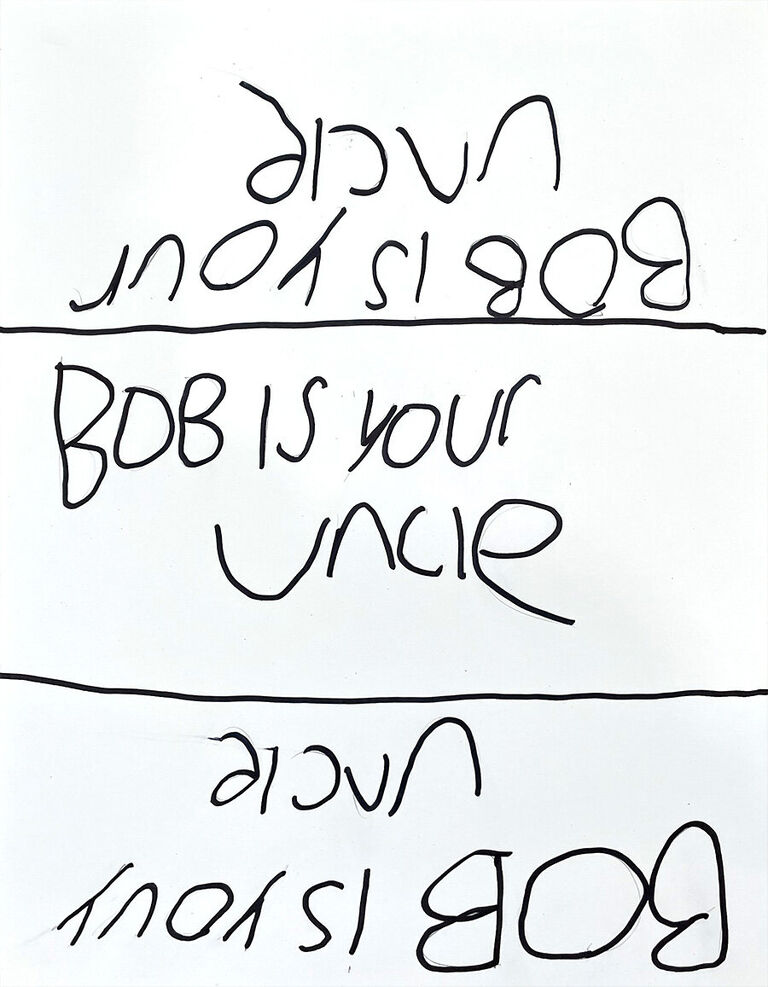 BOB IS your
Uncle
BOB IS your
Uncle
BOB IS youy
Uncle